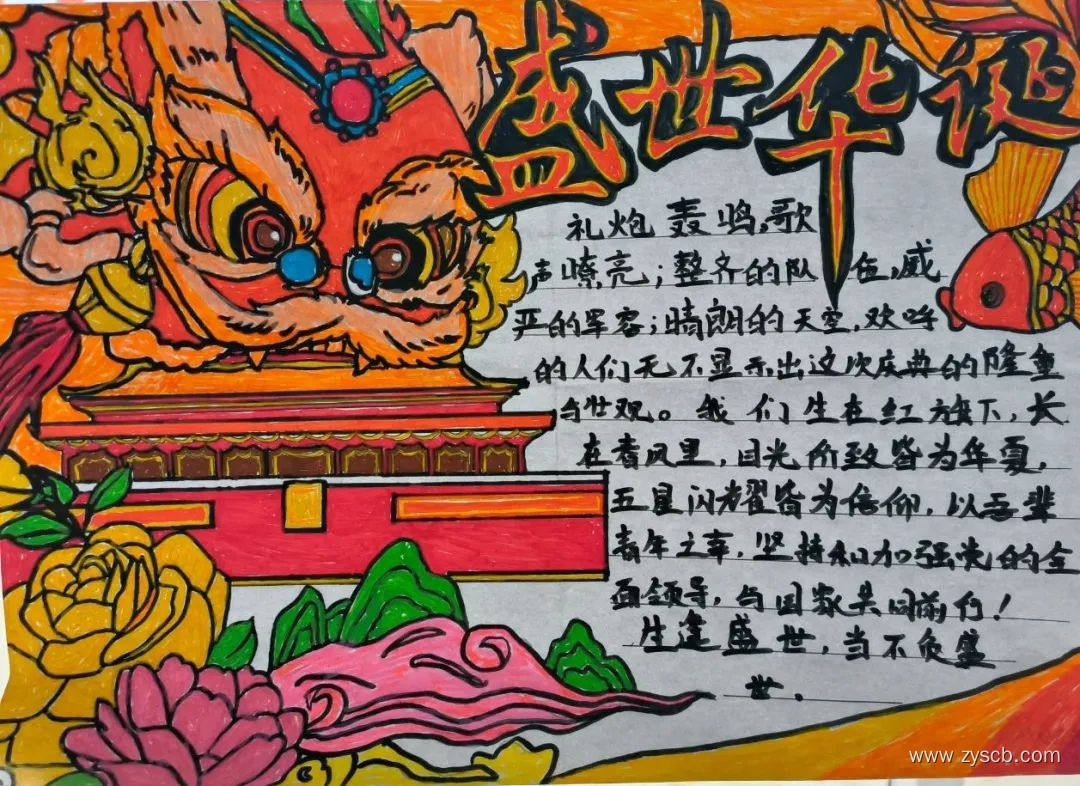 盛世华诞
礼炮轰鸣,歌
声嘹亮;整齐的队伍,威
严的军容;晴朗的天空,欢呼
的人们无不显示出这次庆典的隆重
与壮观。我们生在红旗下,长
在春风里,目光所致皆为华夏,
五星闪耀皆为信仰,以吾辈
青年之幸,坚持和加强党的全
面领导,与国家共同前行!
生逢盛世,当不负盛
世.
www.zyscb.com